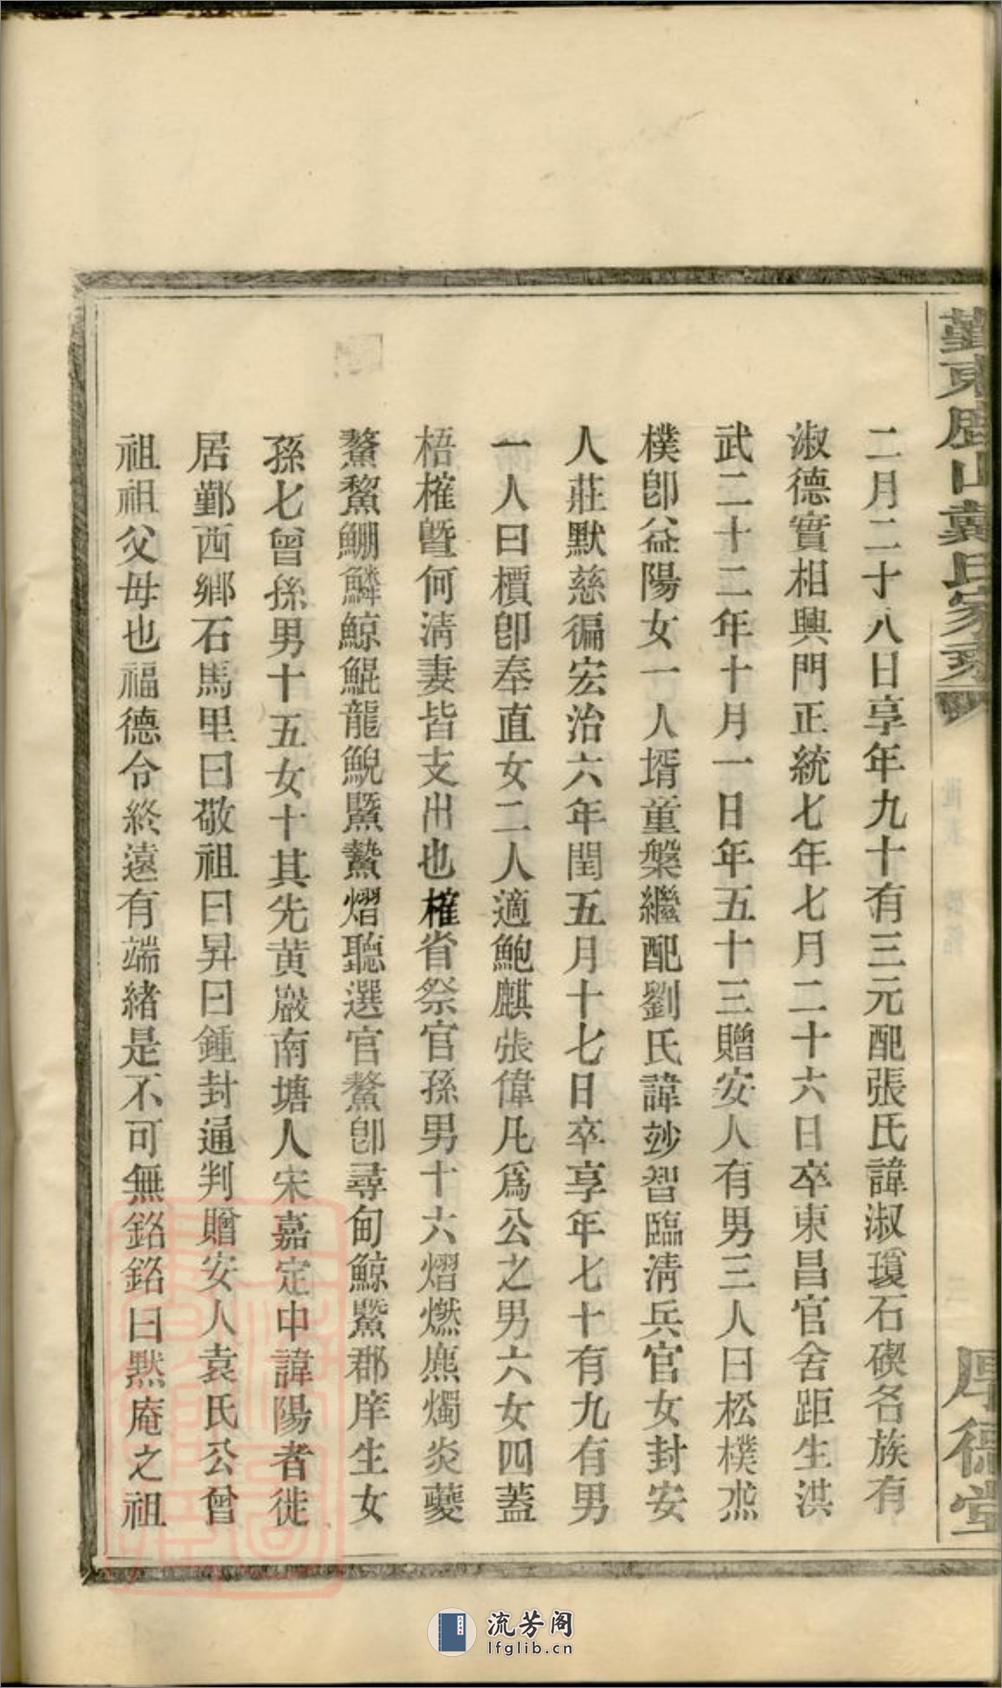 鄞東鹿山戴氏家乘
厚德堂
二月二十八日享年九十有三元配張氏諱淑瓊石碶名族有
淑德實相興門正統七年七月二十六日卒東昌官舍距生洪
武二十二年十月一日年五十三贈安人有男三人曰松樸
樸卽益陽女一人壻童槃繼配劉氏諱妙智臨淸兵官女封安
人莊默慈徧宏治六年閏五月十七日卒享年七十有九有男
一人曰檟卽奉直女二人適鮑麒張偉凡爲公之男六女四蓋
梧榷曁何淸妻皆支出也榷省祭官孫男十六熠燃熊燭炎夔
鰲鰲鯯鱗鯨鯤龍鯢鱀鷙熠聽選官鰲卽尋甸鯨鱀郡庠生女
孫七曾孫男十五女十其先黄巖南塘人宋嘉定中諱陽者徙
居鄞西鄉石馬里曰敬祖曰昇曰鍾封通判贈安人袁氏公曾
祖祖父母也福德令終遠有端緒是不可無銘銘曰默庵之祖
流芳阁
lfglib.cn